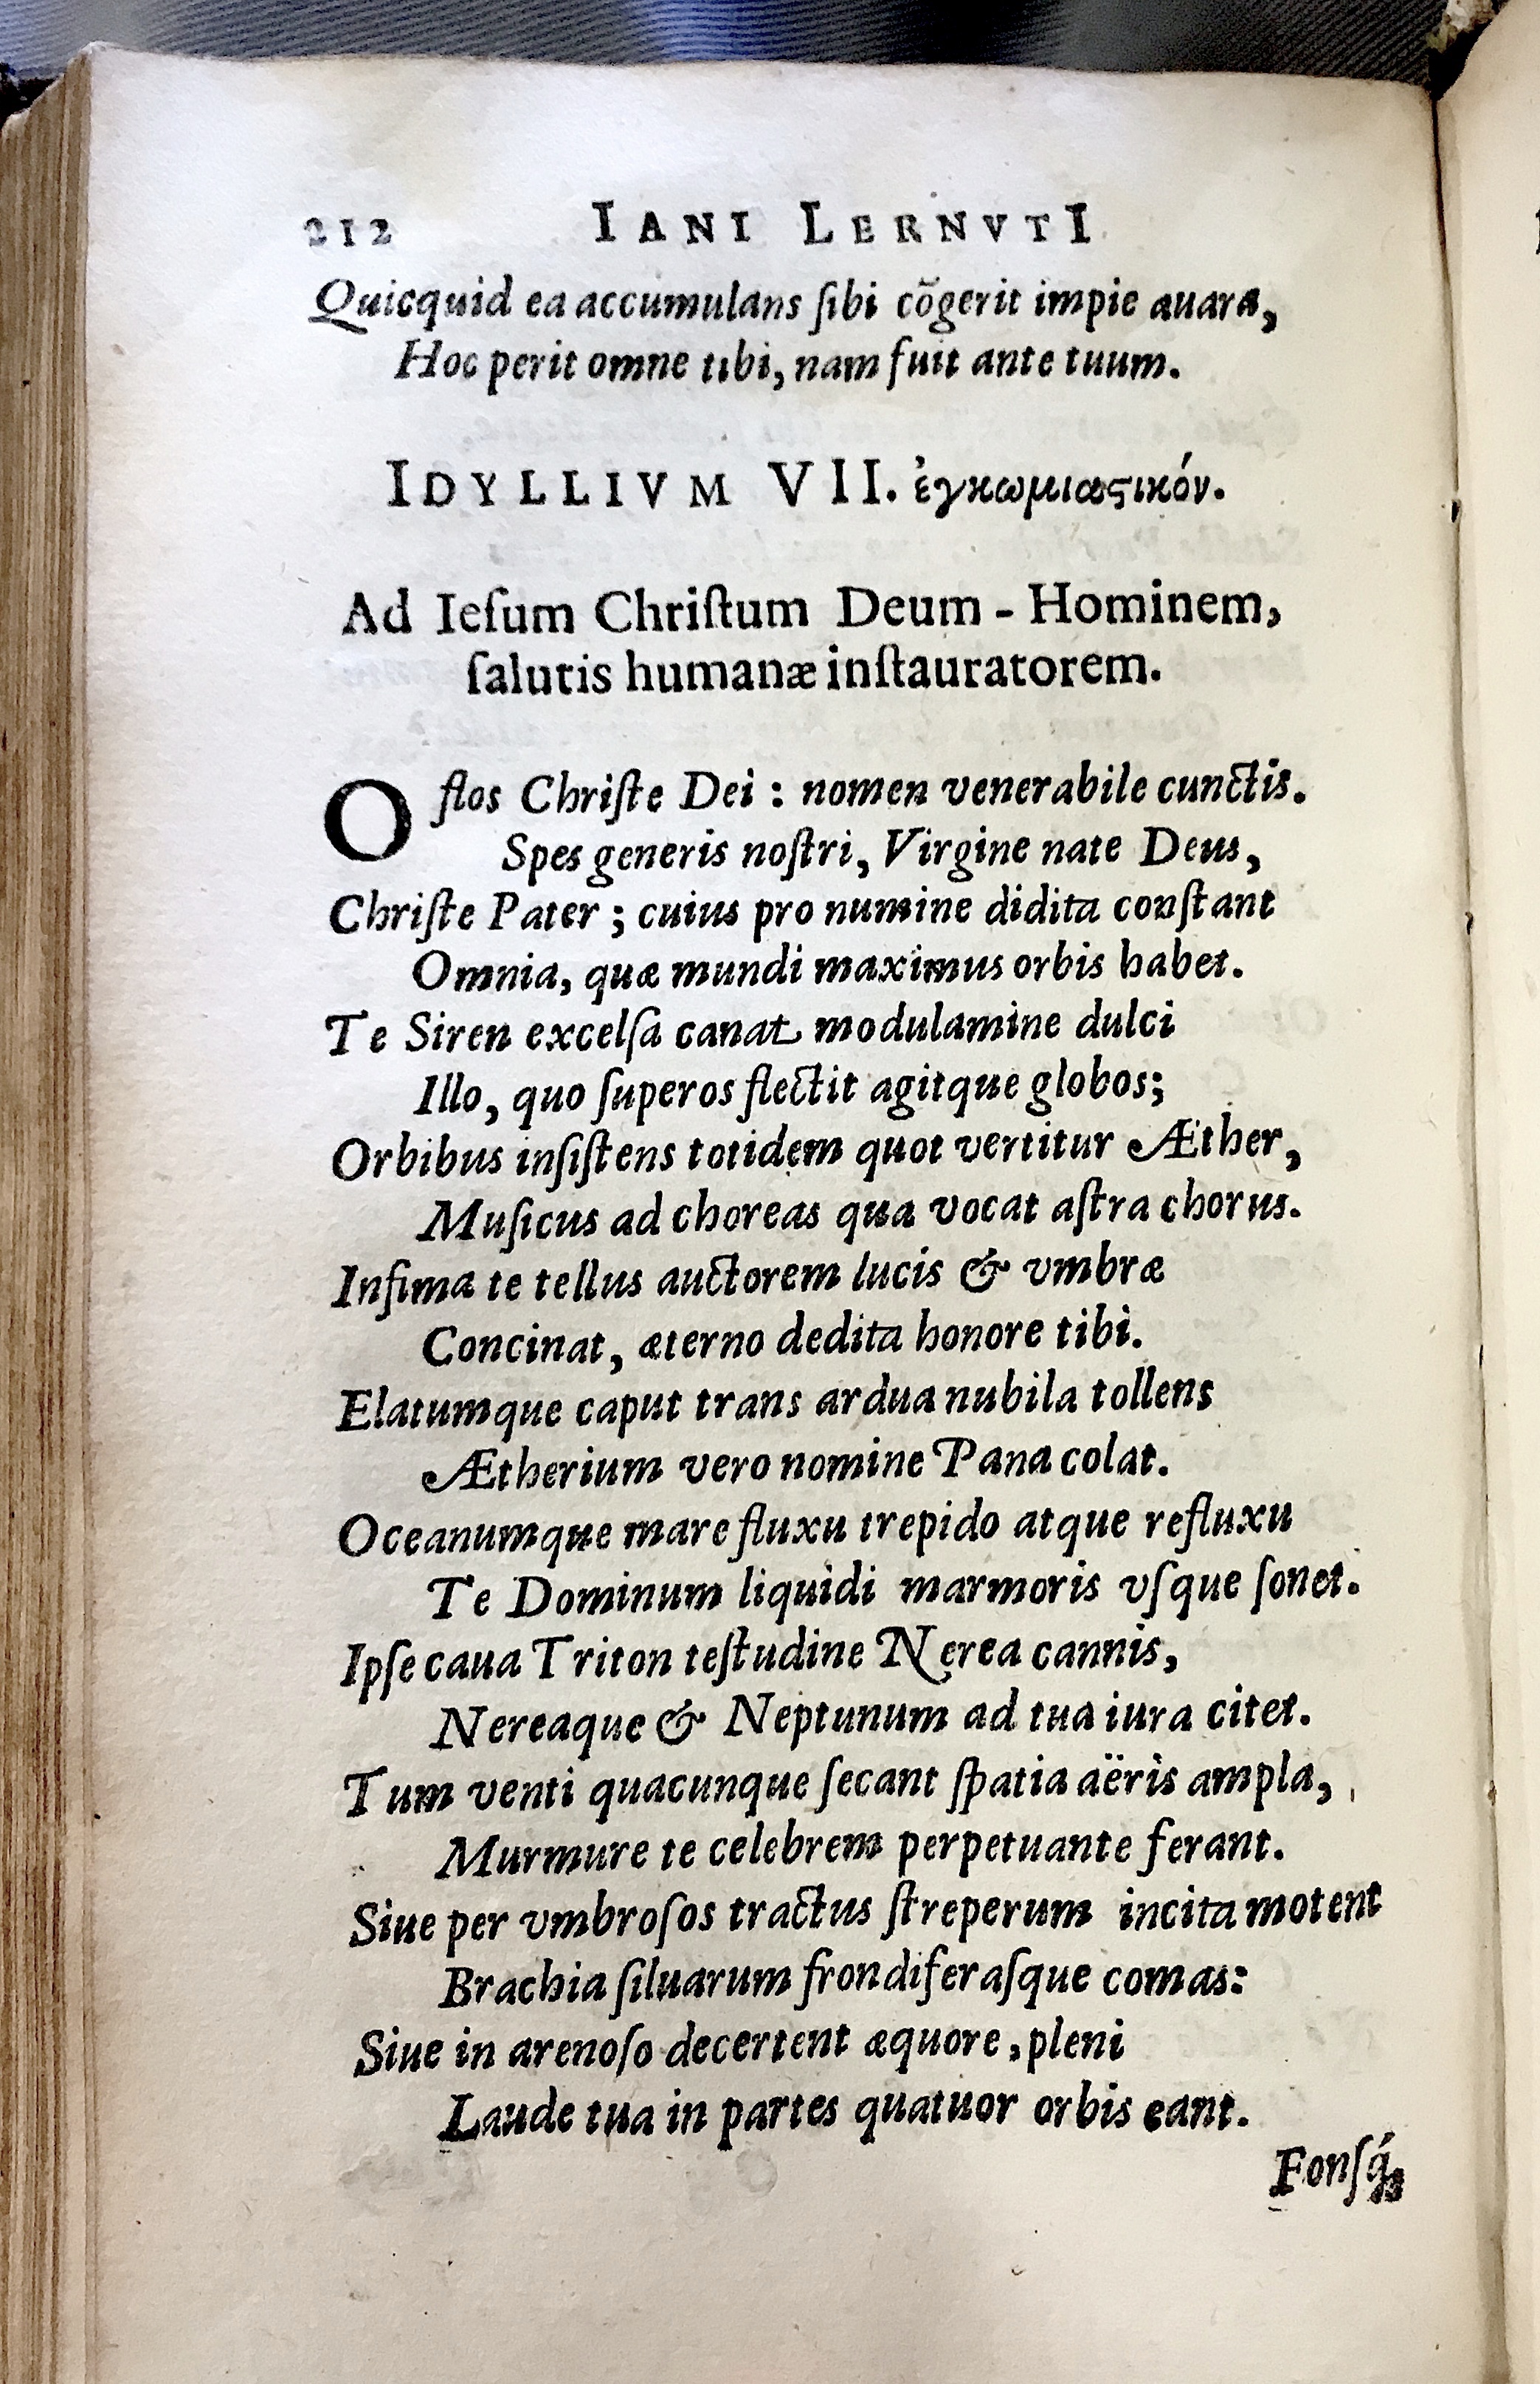 212 IANI LERNVTI
Quicquid ea accumulans ſibi cōgerit impie auara,
Hoc perit omne tibi, nam fuit ante tuum.
IDYLLIVM VII. ἐγκωμιαϛικόν.
Ad Ieſum Chriſtum Deum - Hominem,
ſalutis humanæ inſtauratorem.
O flos Chriſte Dei : nomen venerabile cunctis.
Spes generis noſtri, Virgine nate Deus,
Chriſte Pater ; cuius pro numine didita conſtant
Omnia, quæ mundi maximus orbis habet.
Te Siren excelſa canat modulamine dulci
Illo, quo ſuperos flectit agitque globos;
Orbibus inſiſtens totidem quot vertitur Æther,
Muſicus ad choreas qua vocat aſtra chorus.
Infima te tellus auctorem lucis & vmbræ
Concinat, æterno dedita honore tibi.
Elatumque caput trans ardua nubila tollens
Ætherium vero nomine Pana colat.
Oceanumque mare fluxu trepido atque refluxu
Te Dominum liquidi marmoris vſque ſonet.
Ipſe caua Triton teſtudine Nerea cannis,
Nereaque & Neptunum ad tua iura citet.
Tum venti quacunque ſecant ſpatia aëris ampla,
Murmure te celebrem perpetuante ferant.
Siue per vmbroſos tractus ſtreperum incita motent
Brachia ſiluarum frondiferaſque comas:
Siue in arenoſo decertent æquore, pleni
Laude tua in partes quatuor orbis eant.
Fonſq́;